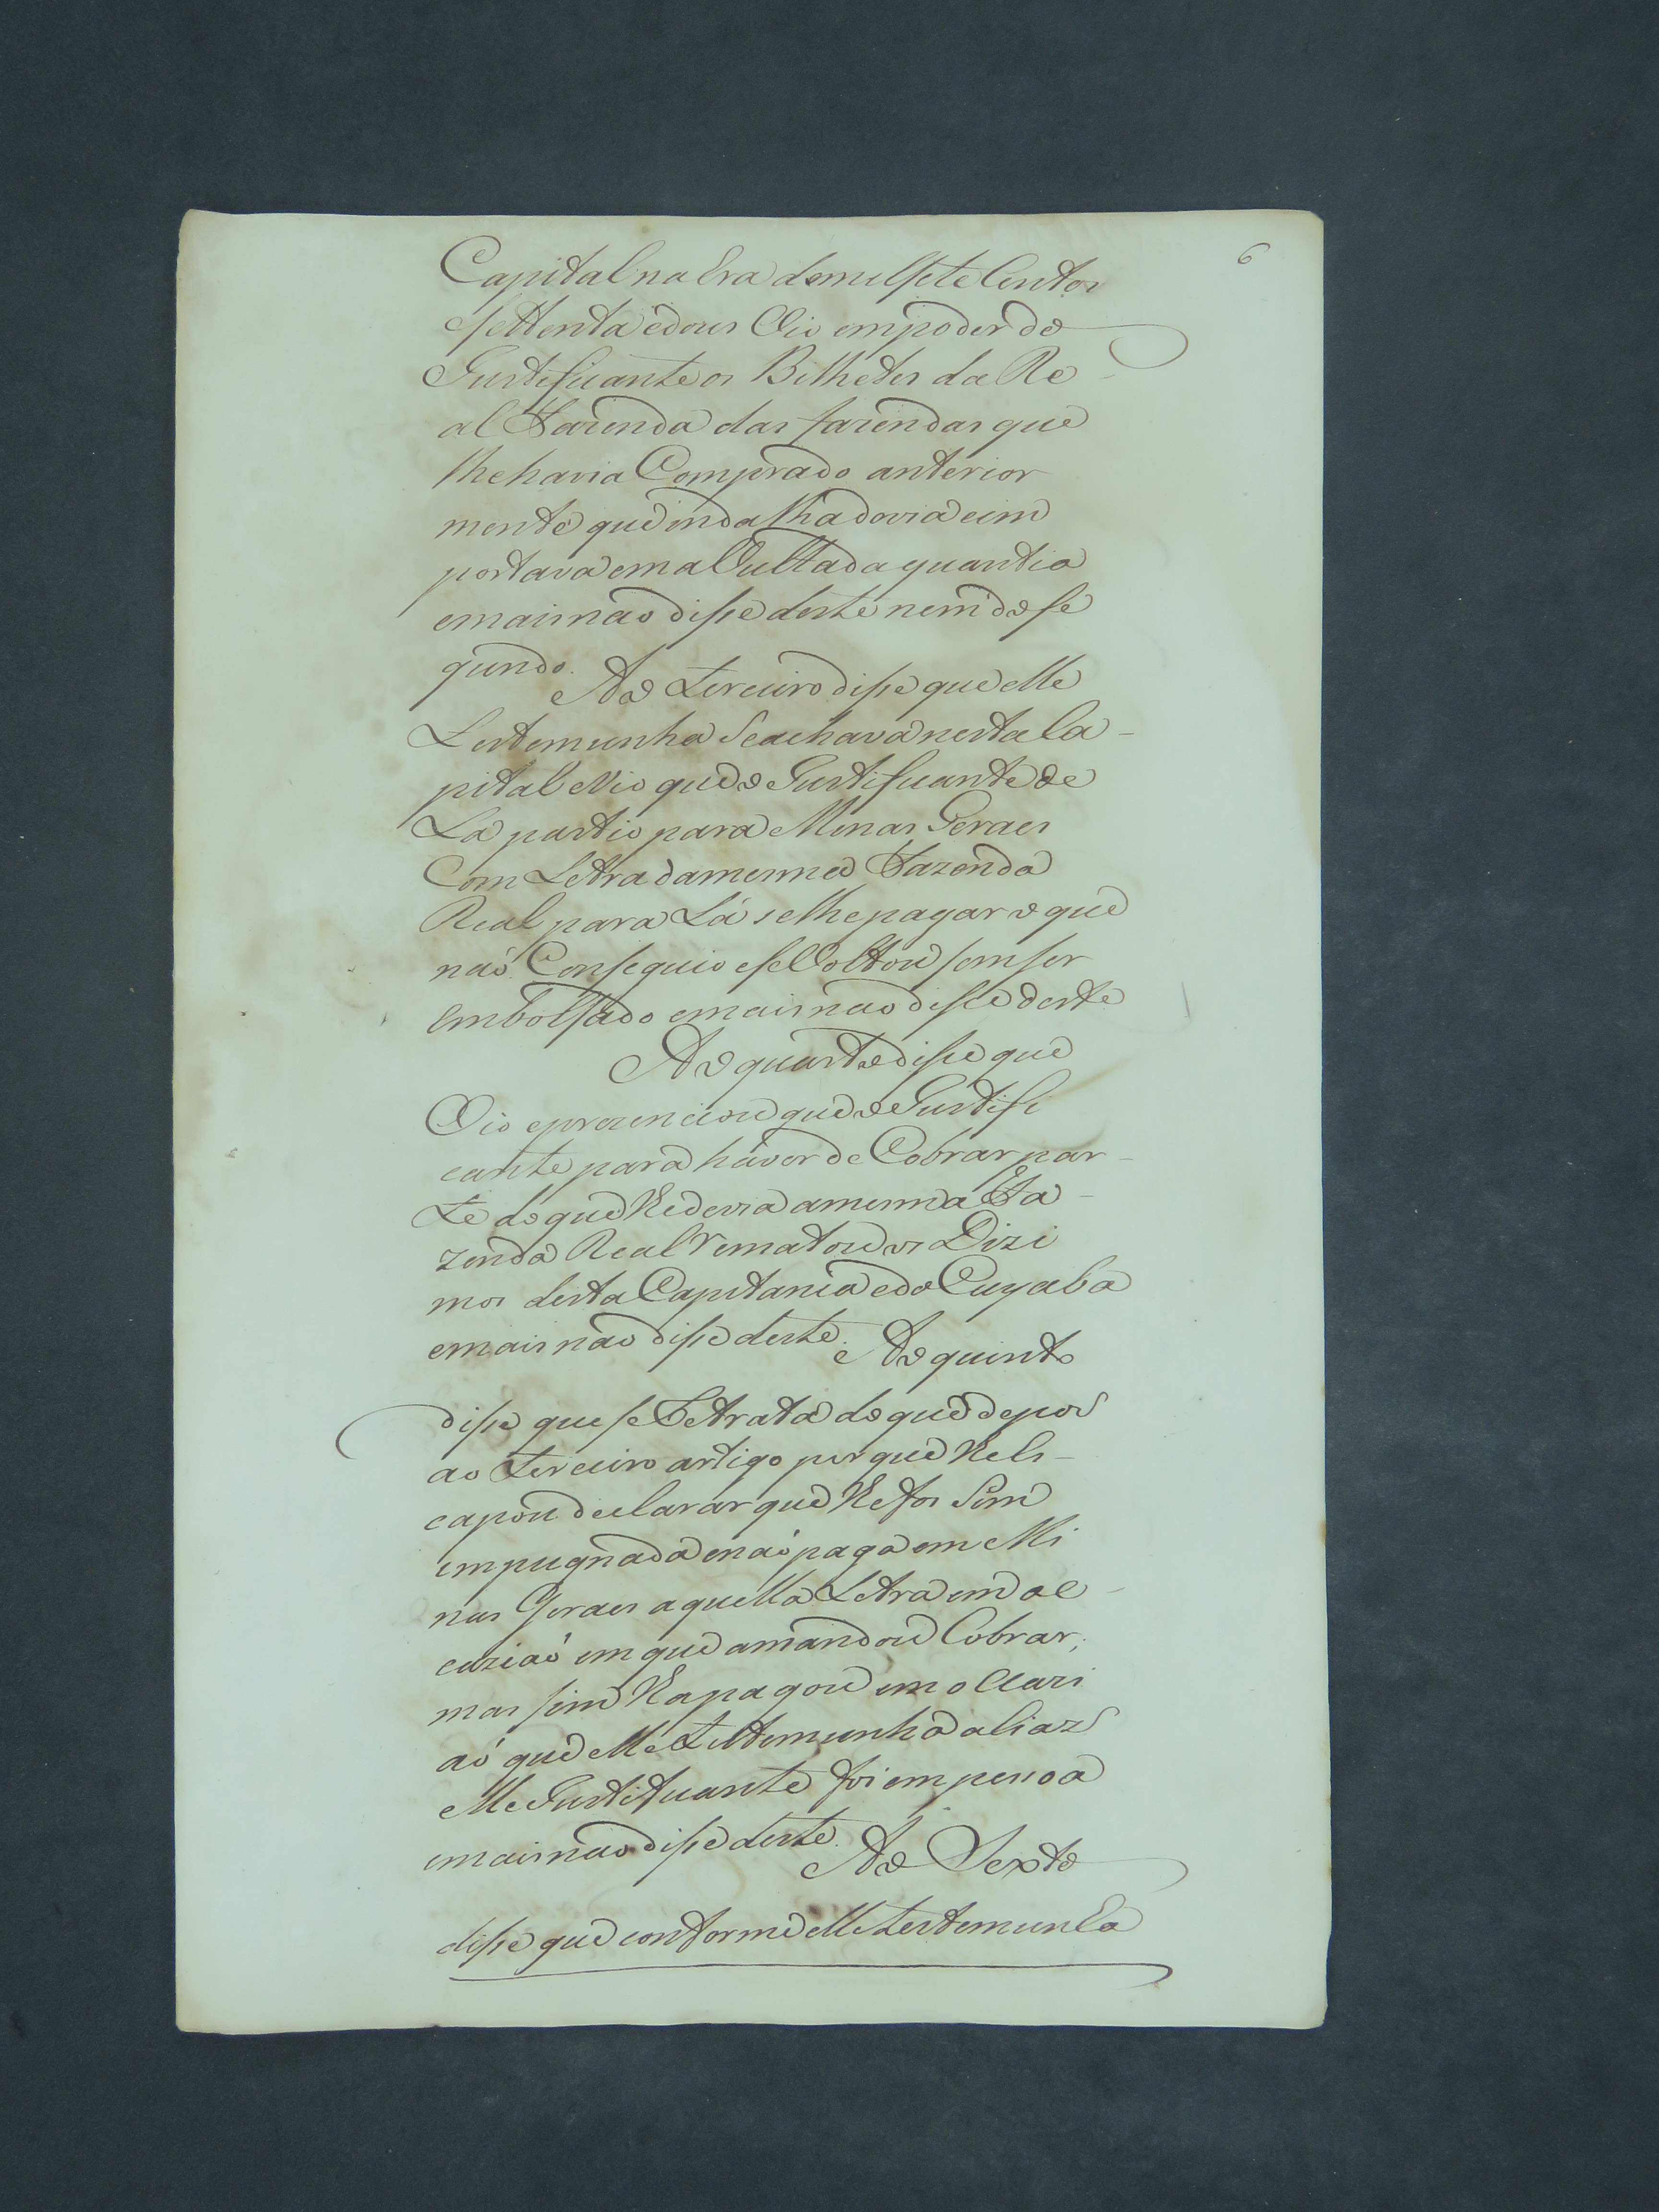 6
Capital na Era de mil sete Centos
settenta e dous Vio em poder do
Justificante os Bilhetes da Re
al Fazenda das fazendas que
lhe havia Comprado anterior
mente que inda lha devia e im
portava em a Vultada quantia
e mais nao disse deste nem do se
gundo. Ao terceiro disse que elle
testemunha Se achava nesta Ca-
pital e Vio que o Justificante de
La partio para Minas Geraes
Com Letra da mesma Fazenda
Real para Lá se lhe pagar o que
naó Conseguio e se Voltou sem ser
embolsado e mais nao disse deste
Ao quarto disse que
Vio e prezenciou que o Justifi
cante para haver de Cobrar par-
te do que lhe devia a mesma Fa-
zenda Real rematou os Dizi
mos desta Capitania e do Cuyaba
e mais nao disse deste. Ao quinto
disse que se Retrata do que depos
ao terceiro artigo por que lhe es-
capou declarar que lhe foi Sim
impugnada e naó paga em Mi
nas Geraes aquella Letra em oc-
caziaó em que a mandou Cobrar;
mas sim lha pagou em occazi
aó que elle testemunha aliaz
elle Justificante foi em pessoa
e mais nao disse deste. Ao Sexto
disse que conforme elle testemunha